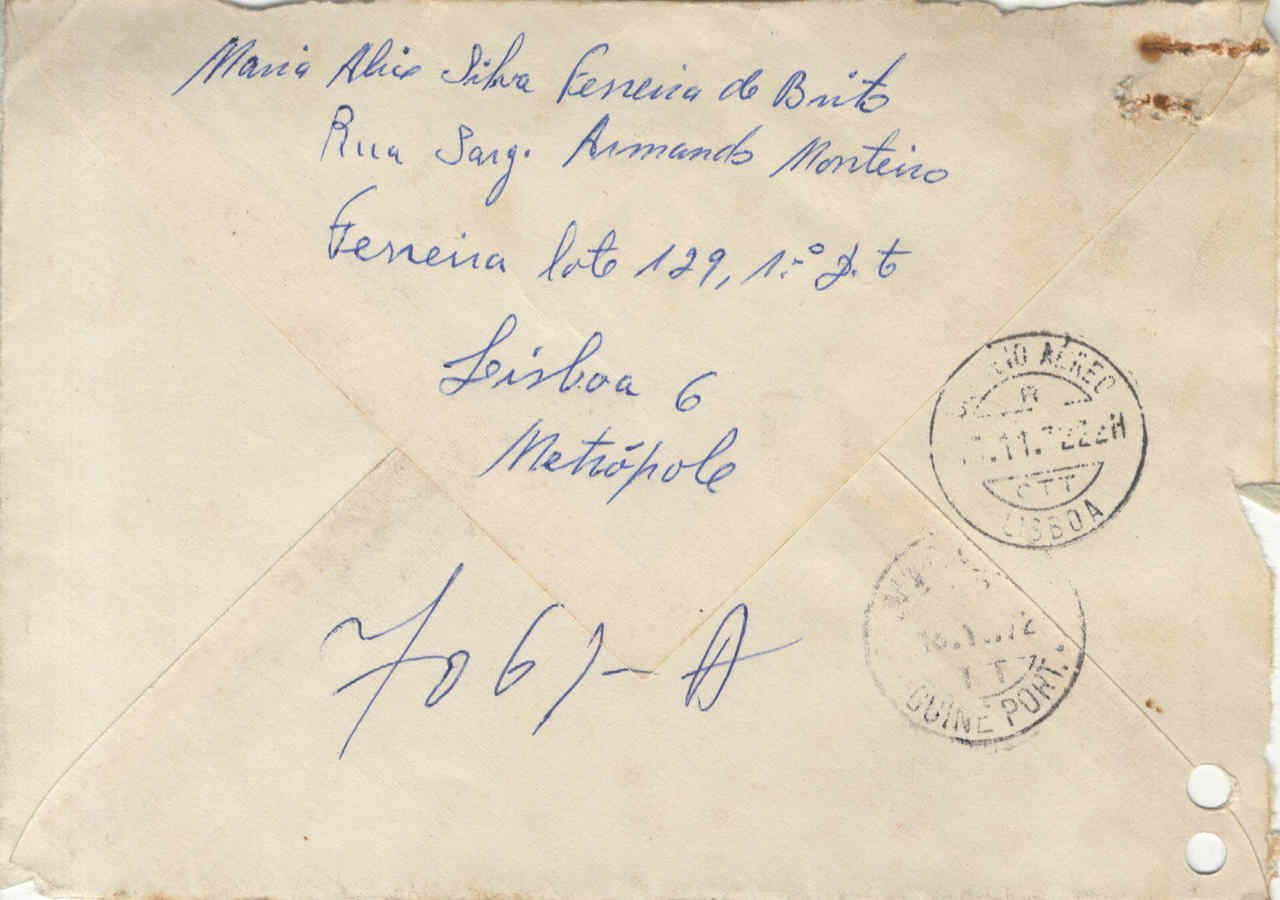 Maria Alice Silva Ferreira de Brito
Rua Sarg. Armando Monteiro
Ferreira lote 129, 1.º D.t
Lisboa 6
Metrópole
AÉREO
R
CTT
LISBOA
GUINÉ PORT.